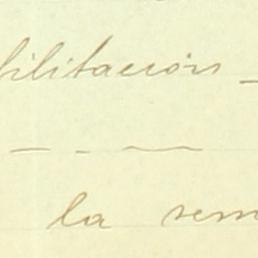 bilitación
la sem